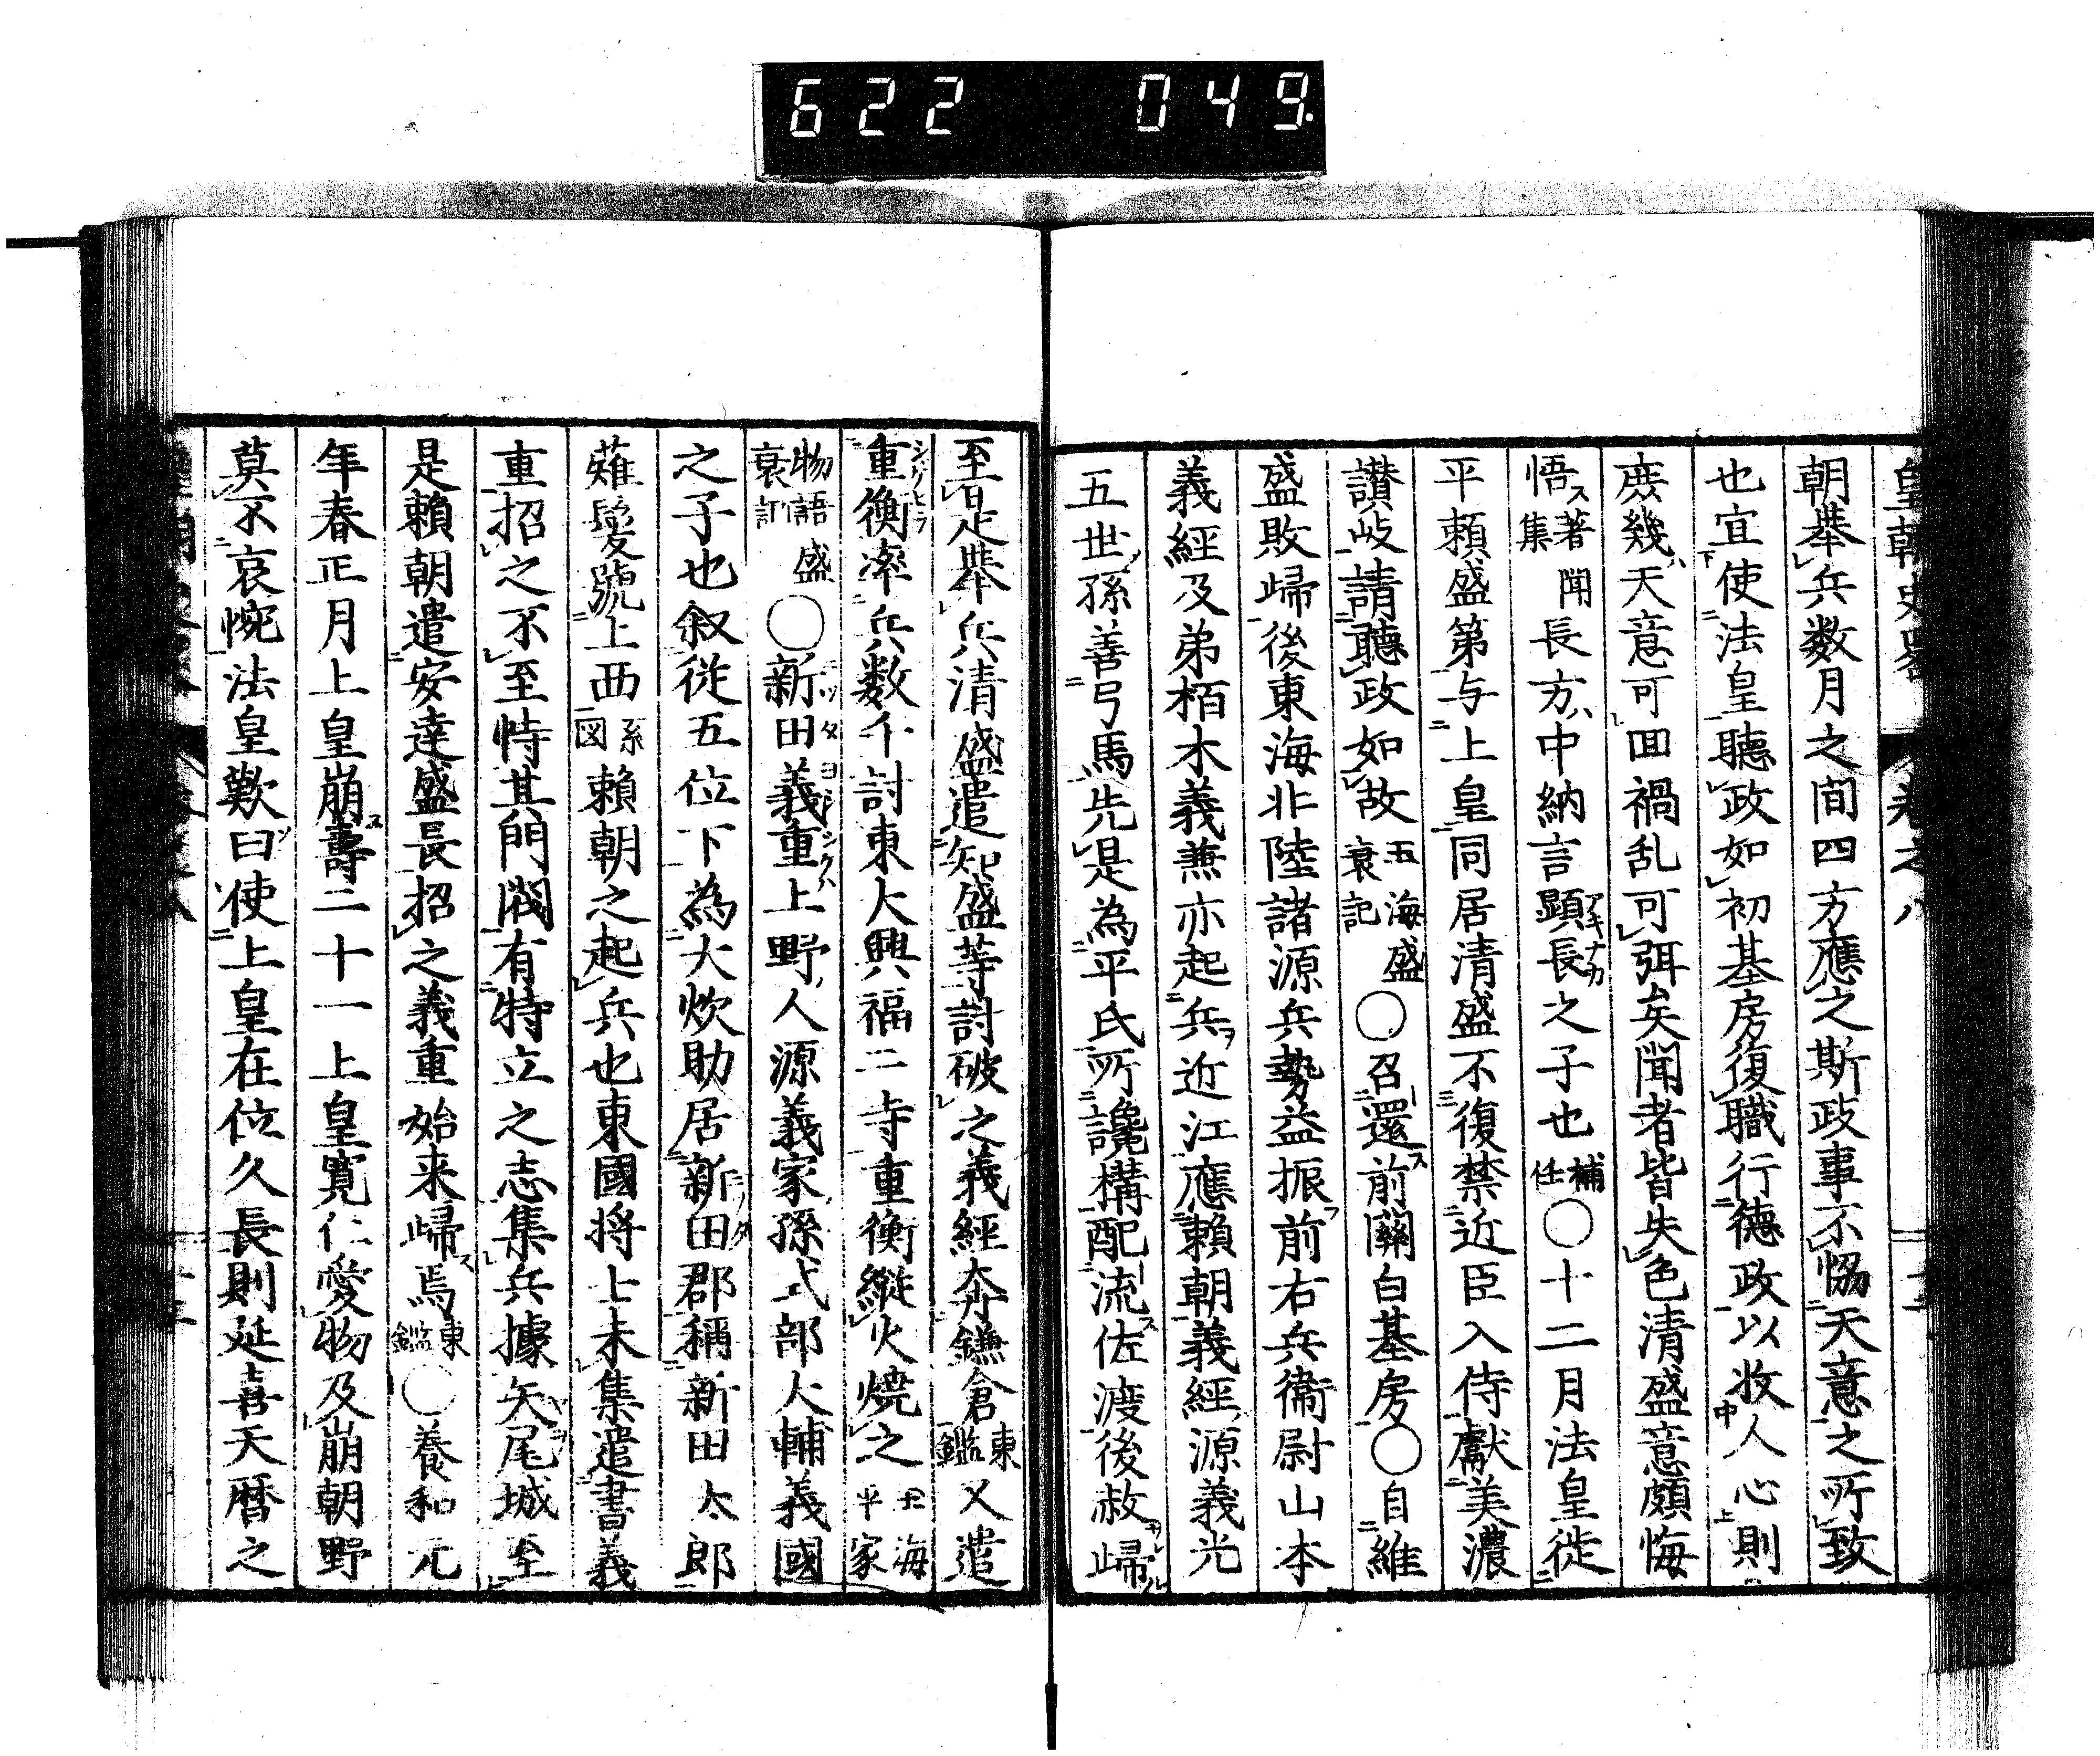 622 049
皇朝史畧 卷之八
朝挙兵数月之間四方應之斯政事不恊天意之所致
也宜使法皇聽政如初基房復職行德政以收人心則
庶幾天意可回禍乱可弭矣聞者皆失色清盛意頗悔
悟著聞集長方中納言顕長之子也補任〇十二月法皇徙
平頼盛第与上皇同居清盛不復禁近臣入侍獻美濃
讃岐請聽政如故玉海盛衰記〇召還前關白基房〇自維
盛敗歸後東海北陸諸源兵勢益振前右兵衞尉山本
義經及弟栢木義兼亦起兵近江應賴朝義經源義光
五世孫善弓馬先是為平氏所讒構配流佐渡後赦歸
至是挙兵清盛遣知盛等討破之義經奔鎌倉東鑑又遣
重衡率兵数千討東大興福二寺重衡縦火焼之玉海平家
物語盛衰記〇新田義重上野人源義家孫式部大輔義國
之子也叙従五位下為大炊助居新田郡稱新田太郎
薙髮號上西系図賴朝之起兵也東國将士未集遣書義
重招之不至恃其門閥有特立之志集兵據寺尾城至
是賴朝遣安達盛長招之義重始来歸焉東鑑〇養和元
年春正月上皇崩壽二十一上皇寛仁愛物及崩朝野
莫不哀惋法皇歎曰使上皇在位久長則延喜天暦之